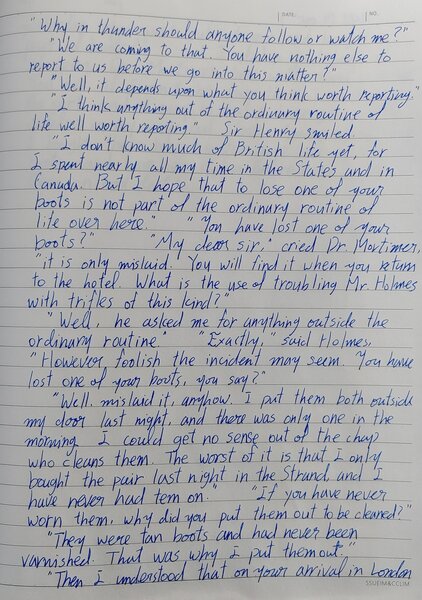 DATE: NO.
"Why in thunder should anyone follow or watch me?"
"We are coming to that. You have nothing else to
report to us before we go into this matter?"
"Well, it depends upon what you think worth reporting."
"I think anything out of the ordinary routine of
life well worth reporting." Sir Henry smiled.
"I don't know much of British life yet, for
I spent nearly all my time in the States and in
Canada. But I hope that to lose one of your
boots is not part of the ordinary routine of
life over here." "You have lost one of your
boots?" "My dear sir," cried Dr. Mortimer,
"it is only mislaid. You will find it when you return
to the hotel. What is the use of troubling Mr. Holmes
with trifles of this kind?"
"Well, he asked me for anything outside the
ordinary routine." "Exactly," said Holmes,
"However foolish the incident may seem. You have
lost one of your boots, you say?"
"Well. mislaid it, anyhow. I put them both outside
my door last night, and there was only one in the
morning. I could get no sense out of the chap
who cleans them. The worst of it is that I only
bought the pair last night in the Strand, and I
have never had tem on." "If you have never
worn them, why did you put them out to be cleaned?"
"They were tan boots and had never been
varnished. That was why I put them out."
"Then I understood that on your arrival in London
SSUEIM&CCLIM